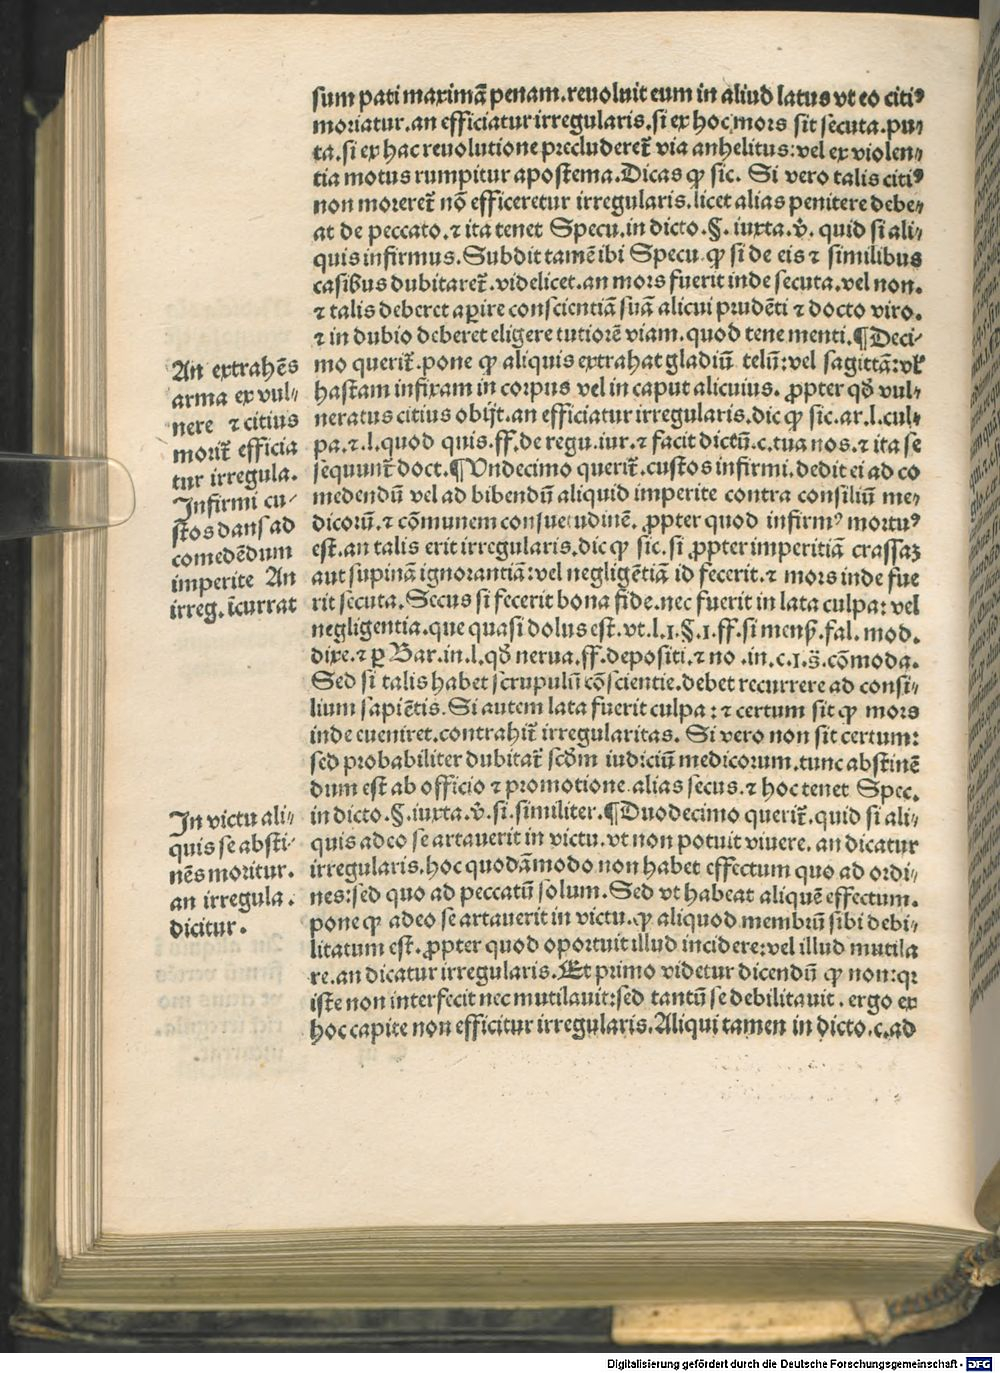 sum pati maximã penam.reuoluit eum in aliud latus vt eo citiꝰ
moriatur.an efficiatur irregularis.si ex hoc mors sit secuta.pu⸗
ta.si ex hac reuolutione precluderet̃ via anhelitus:vel ex violen⸗
tia motus rumpitur apostema.Dicas ꝙ sic. Si vero talis citiꝰ
non moreret̃ nõ efficeretur irregularis.licet alias penitere debe⸗
at de peccato.⁊ ita tenet Specu.in dicto.§. iuxta.v̓. quid si ali⸗
quis infirmus.Subdit tamẽ ibi Specu.ꝙ si de eis ⁊ similibus
casibus dubitaret̃.videlicet.an mors fuerit inde secuta.vel non.
⁊ talis deberet aperire conscientiã suã alicui prudẽti ⁊ docto viro.
⁊ in dubio deberet eligere tutiorẽ viam.quod tene menti.¶Deci⸗
mo querit̃.pone ꝙ aliquis extrahat gladiũ telũ:vel sagittã:vł
hastam infixam in corpus vel in caput alicuius. ꝓpter qđ vul⸗
neratus citius obijt.an efficiatur irregularis.dic ꝙ sic.ar.l.cul⸗
pa.⁊.l.quod quis.ff.de regu.iur.⁊ facit dictũ.c.tua nos.⁊ ita se
sequunt̃ doct.¶Undecimo querit̃.custos infirmi.dedit ei ad co
medendũ vel ad bibendũ aliquid imperite contra consiliũ me⸗
dicorũ.⁊ cõmunem consuetudinẽ. ꝓpter quod infirmꝰ mortuꝰ
est.an talis erit irregularis.dic ꝙ sic.si ꝓpter imperitiã crassaꝫ
aut supinã ignorantiã:vel negligẽtiã id fecerit.⁊ mors inde fue
rit secuta.Secus si fecerit bona fide.nec fuerit in lata culpa: vel
negligentia.que quasi dolus est.vt.l.1.§.1.ff.si menſ.fal. mod.
dixe.⁊ ꝑ Bar.in.l.qđ nerua.ff.depositi.⁊ no .in.c.1.s̈.cõmoda.
Sed si talis habet scrupulũ cõscientie.debet recurrere ad consi⸗
lium sapiẽtis.Si autem lata fuerit culpa:⁊ certum sit ꝙ mors
inde eueniret.contrahit̃ irregularitas. Si vero non sit certum:
sed probabiliter dubitat̃ scđm iudiciũ medicorum.tunc abstinẽ
dum est ab officio ⁊ promotione.alias secus.⁊ hoc tenet Spec.
in dicto.§.iuxta.v̓.si.similiter.¶Duodecimo querit̃.quid si ali⸗
quis adeo se artauerit in victu.vt non potuit viuere. an dicatur
irregularis.hoc quodãmodo non habet effectum quo ad ordi⸗
nes:sed quo ad peccatũ solum.Sed vt habeat aliquẽ effectum.
pone ꝙ adeo se artauerit in victu.ꝙ aliquod membrũ sibi debi⸗
litatum est.ꝓpter quod oportuit illud incidere:vel illud mutila
re.an dicatur irregularis.Et primo videtur dicendũ ꝙ non:qꝛ
iste non interfecit nec mutilauit:sed tantũ se debilitauit . ergo ex
hoc capite non efficitur irregularis.Aliqui tamen in dicto.c.ad
An extrahẽs
arma ex vul⸗
nere ⁊ citius
morit̃ efficia
tur irregula.
Infirmi cu⸗
stos dans ad
comedẽdum
imperite An
irreg. ĩcurrat
In victu ali⸗
quis se absti⸗
nẽs moritur.
an irregula.
dicitur.
Digitalisierung gefördert durch die Deutsche Forschungsgemeinschaft - DFG